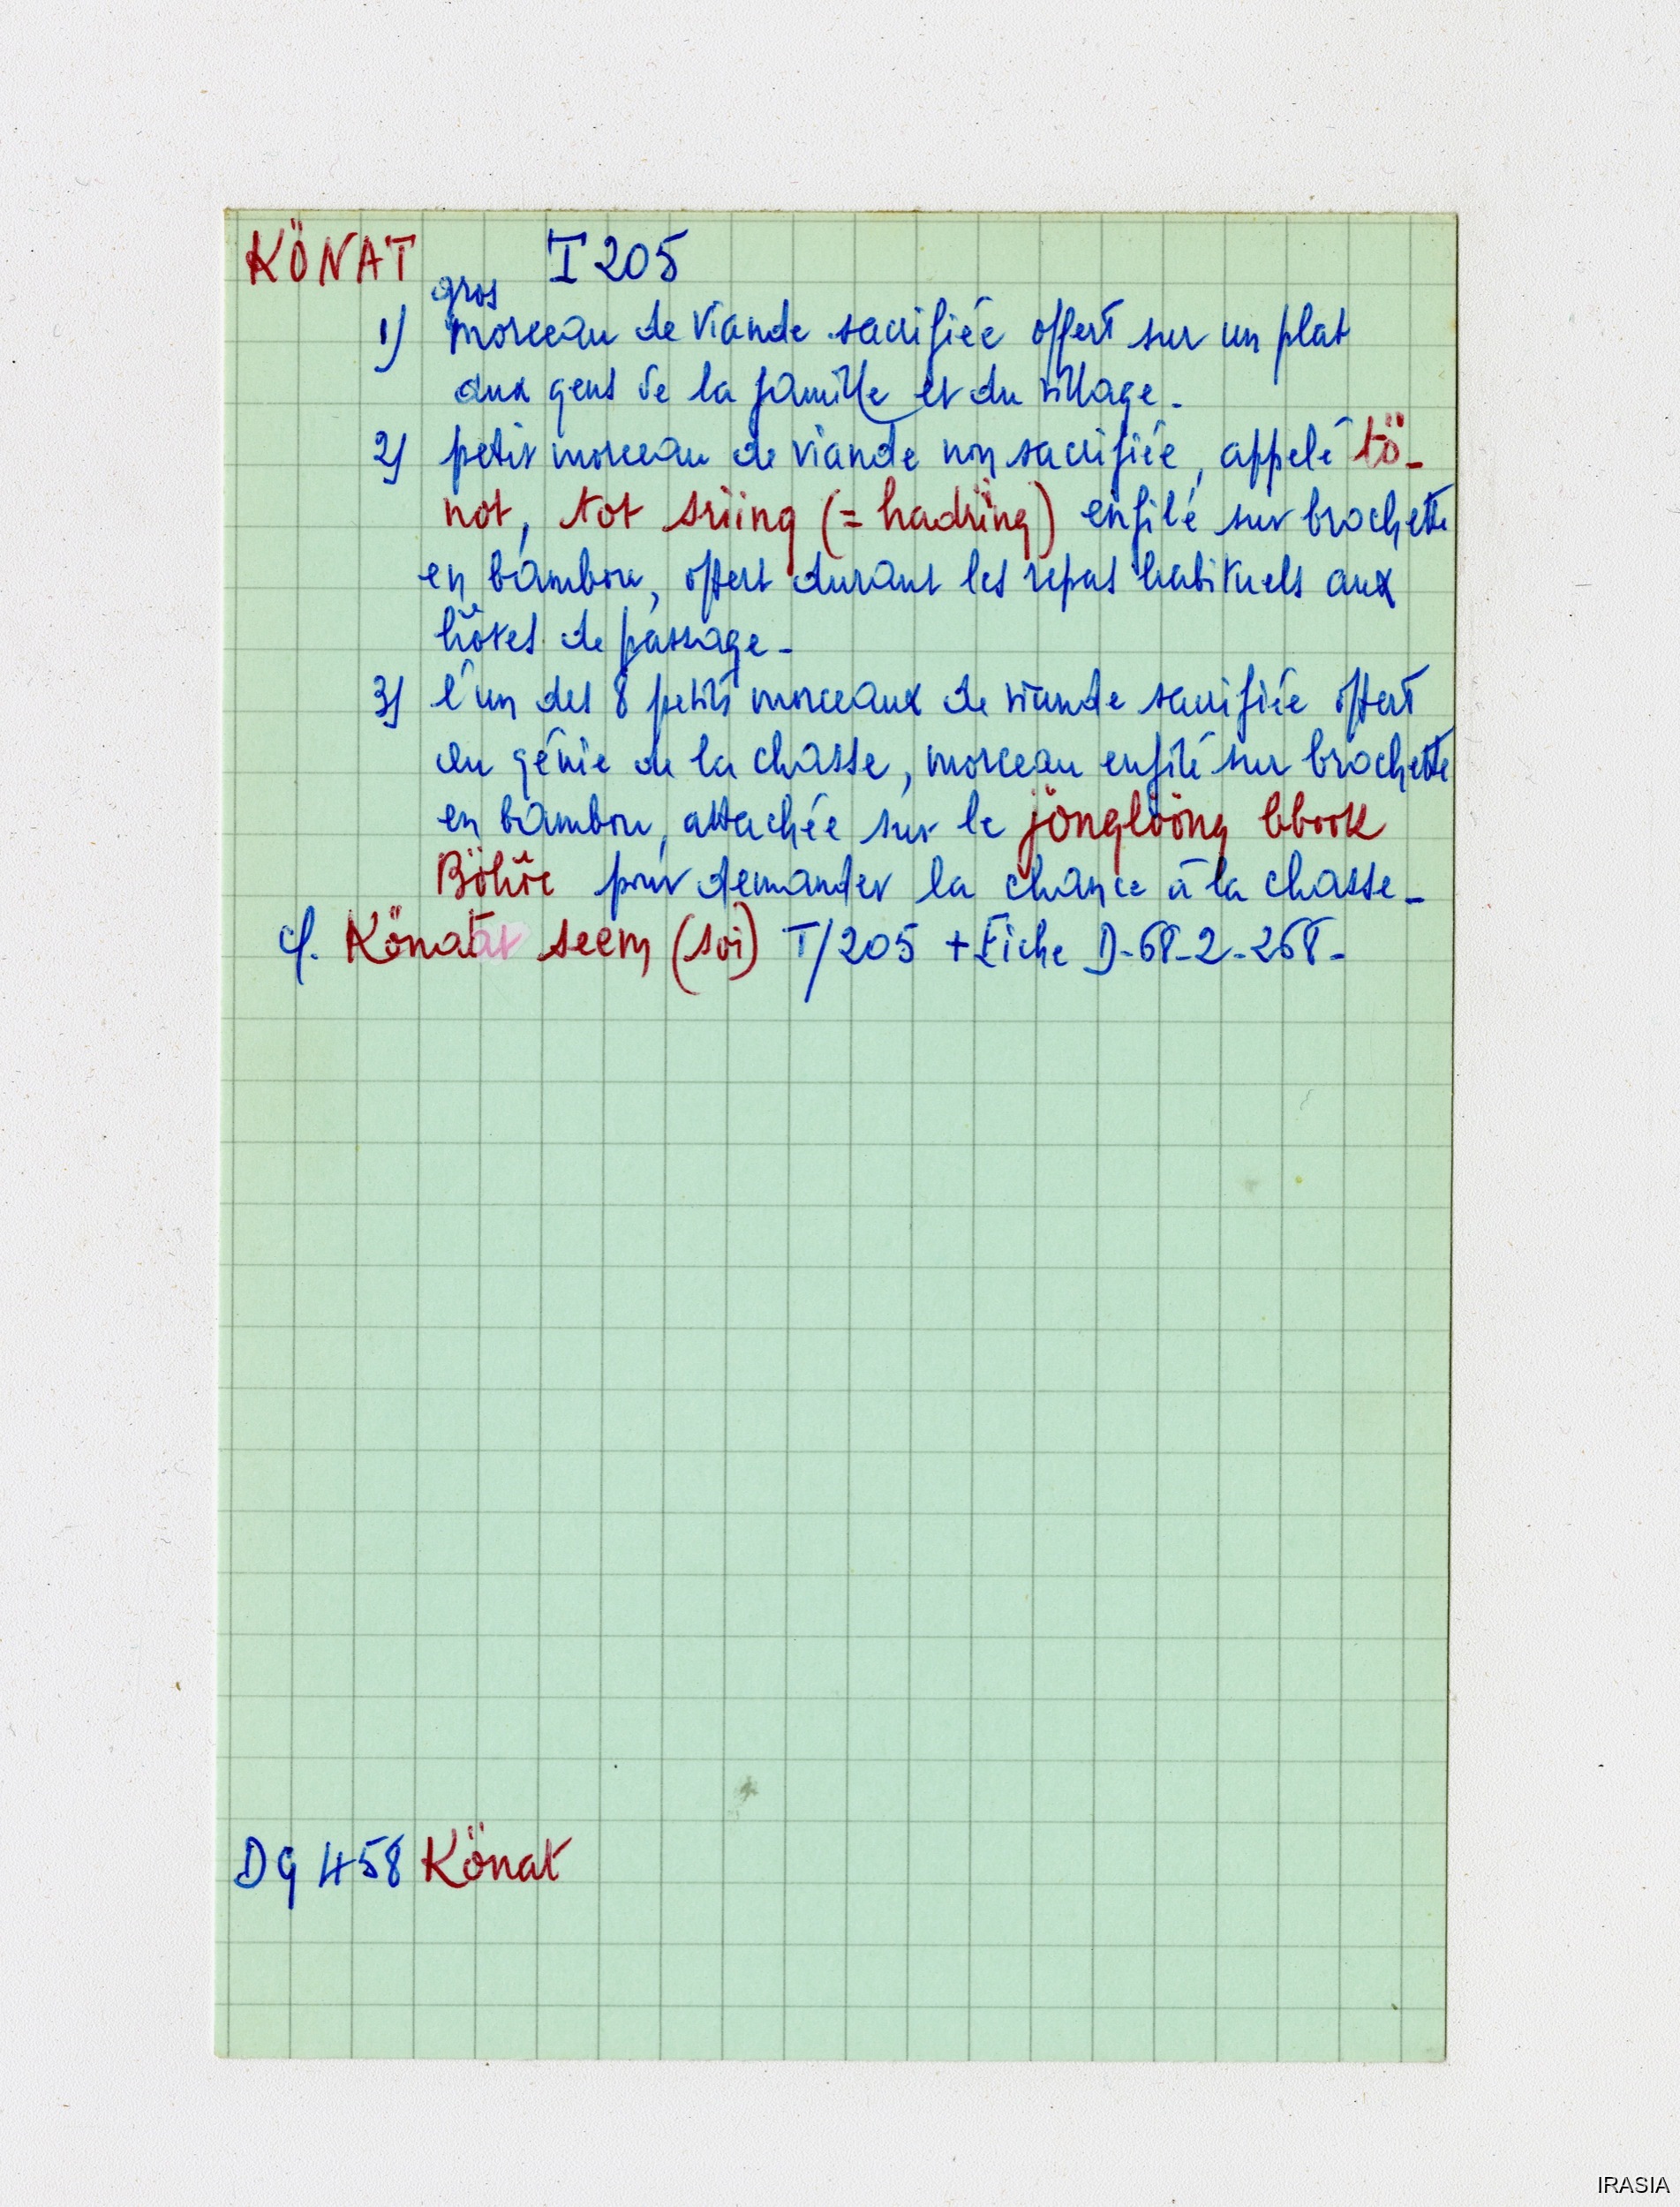 KÖNAT I 205
gros
1) morceau de viande sacrifiée offert sur un plat
aux gens de la famille et du village_
2) petit morceau de viande non sacrifiée, appelé tö_
not, tot sriing (= hadring) enfilé sur brochette
en bambou, offert durant les repas habituels aux
hôtes de passage_
3) l'un des 8 petits morceaux de viande sacrifiée offert
au génie de la chasse, morceau enfilé sur brochette
en bambou, attachée sur le jönglööng bbook
pour demander la chance à la chasse_
cf. Könaat seem (soi) T/205 + Fiche D-68-2-268-
DG 458 Könat
IRASIA